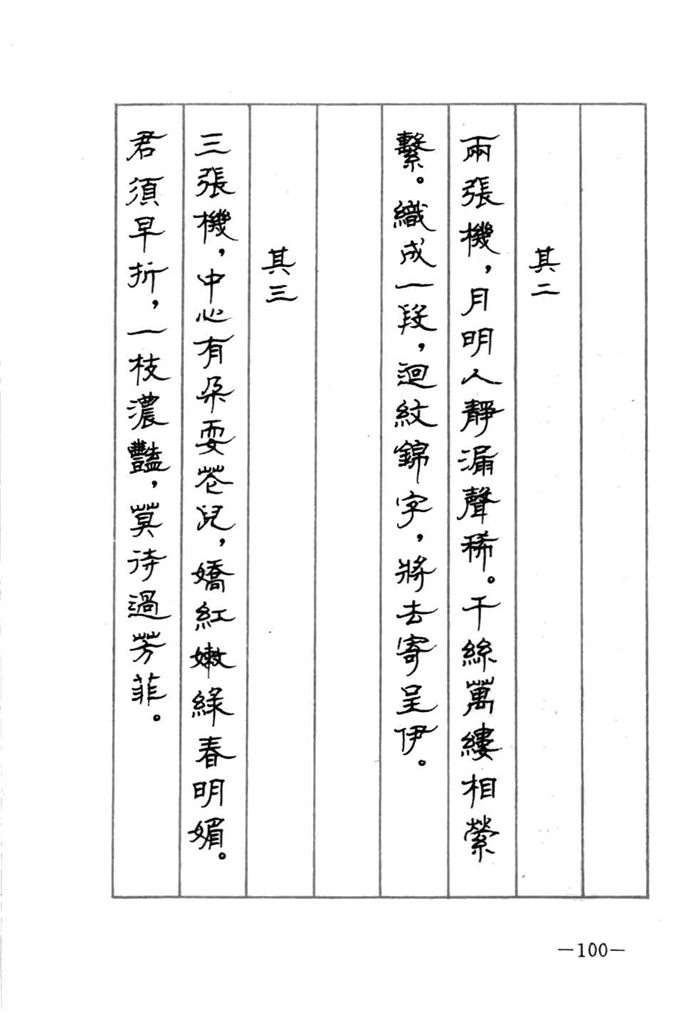 其二
兩張機，月明人靜漏聲稀。千絲萬縷相縈
繫。織成一段，迴紋錦字，將去寄呈伊。
其三
三張機，中心有朵耍花兒，嬌紅嫩綠春明媚。
君須早折，一枝濃豔，莫待過芳菲。
—100—